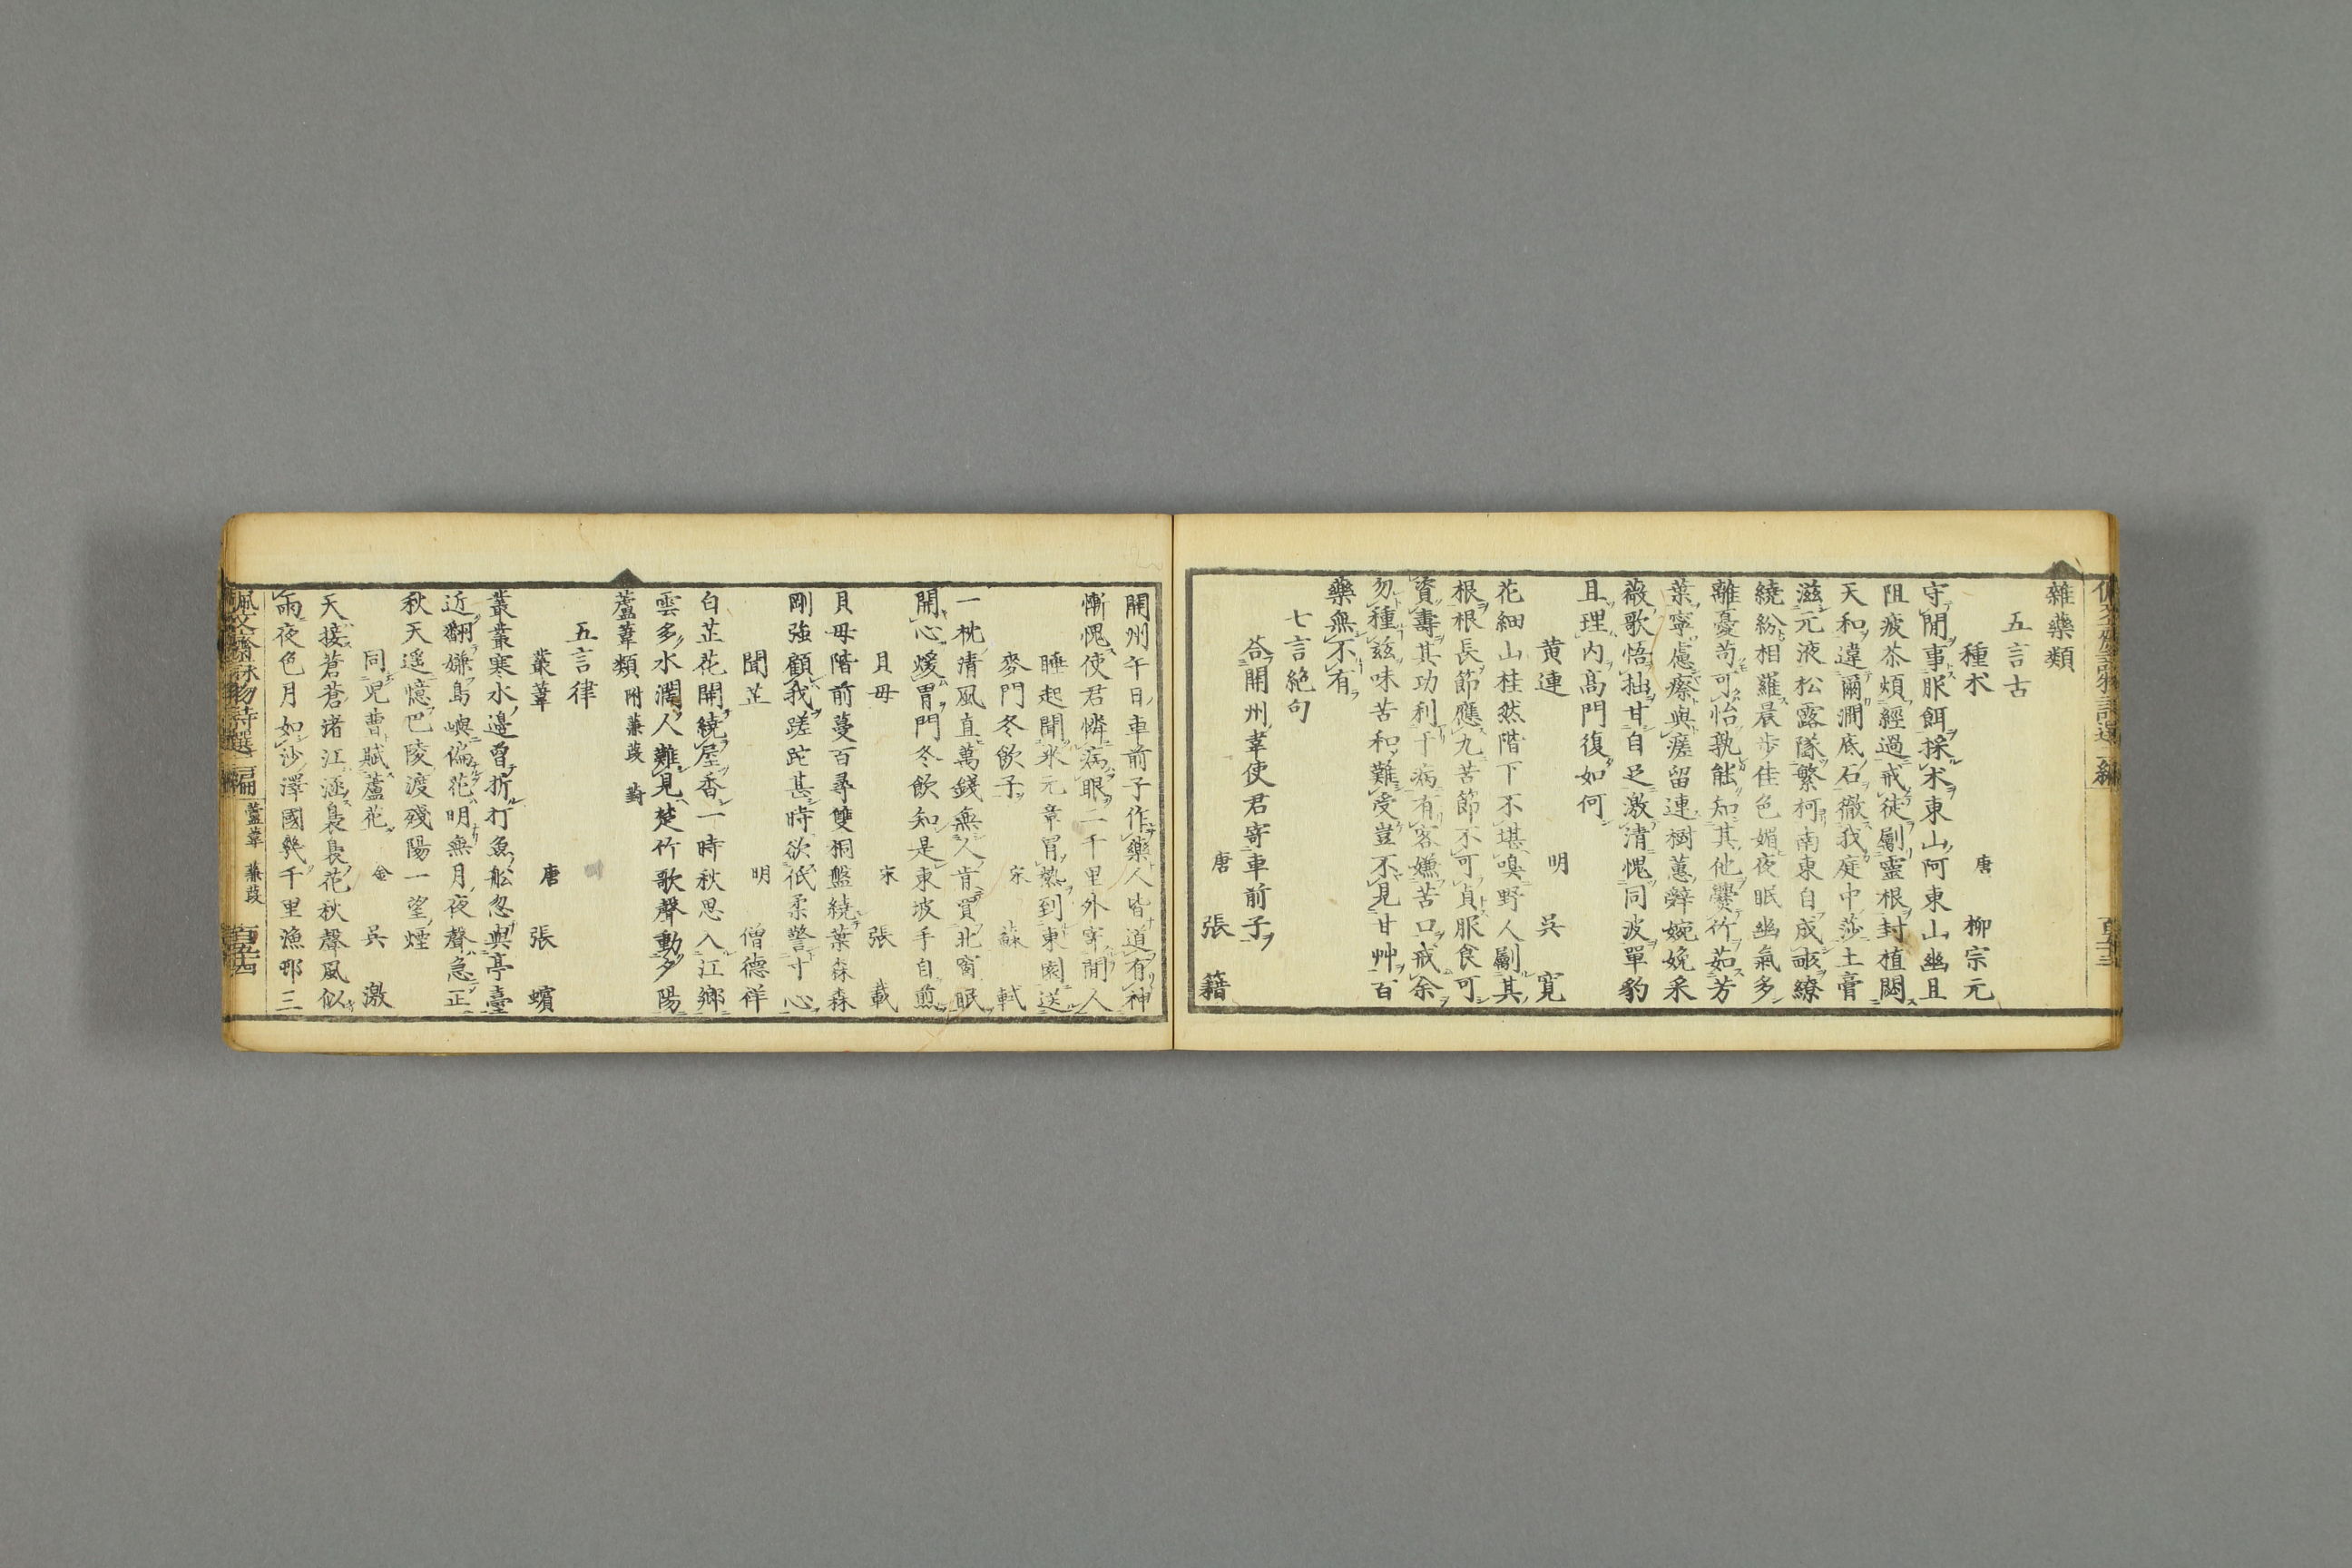 雜藥類
五言古
種朮 唐 柳宗元
守閒事服餌採朮東山阿東山幽且
阻疲苶煩經過戒徒劚靈根封植閟
天和違爾澗底石徹我庭中莎土膏
滋元液松露墜繁柯南東自成畝繚
繞紛相羅晨歩佳色媚夜眠幽氣多
離憂苟可怡孰能知其他爨竹茹芳
葉寧慮瘵與瘥留連樹蕙辭婉娩采
薇歌悟拙甘自足激清愧同波單豹
且理内髙門復如何
黄連 明 吳寛
花細山桂然階下不堪嗅野人劚其
根根長節應九苦節不可貞服食可
資壽其功利千病有客嫌苦口戒余
勿種兹味苦和難受豈不見甘艸百
藥無不有
七言絶句
答開州韋使君寄車前子
唐 張籍
開州午日車前子作藥人皆道有神
慚愧使君憐病眼二千里外寄閒人
睡起聞米元章冐熱到東園送
麥門冬飲子 宋 蘇軾
一枕清風直萬錢無人肯買北窗眠
開心煖胃門冬飲知是東坡手自煎
貝母 宋 張載
貝母階前蔓百尋雙桐盤繞葉森森
剛強顧我蹉跎甚時欲低柔警寸心
聞芷 明 僧德祥
白芷花開繞屋香一時秋思入江鄉
雲多水濶人難見楚竹歌聲動夕陽
蘆葦類 附蒹葭 葑
五言律
叢葦 唐 張蠙
叢叢寒水邊曾折打魚舩忽與亭臺
近翻嫌島嶼偏花明無月夜聲急正
秋天遥憶巴陵渡殘陽一望煙
同兒曹賦蘆花 金 吳激
天接蒼蒼渚江涵裊裊花秋聲風似
雨夜色月如沙澤國幾千里漁邨三
佩文齋詠物詩選二編 蘆葦 蒹葭 百五十四